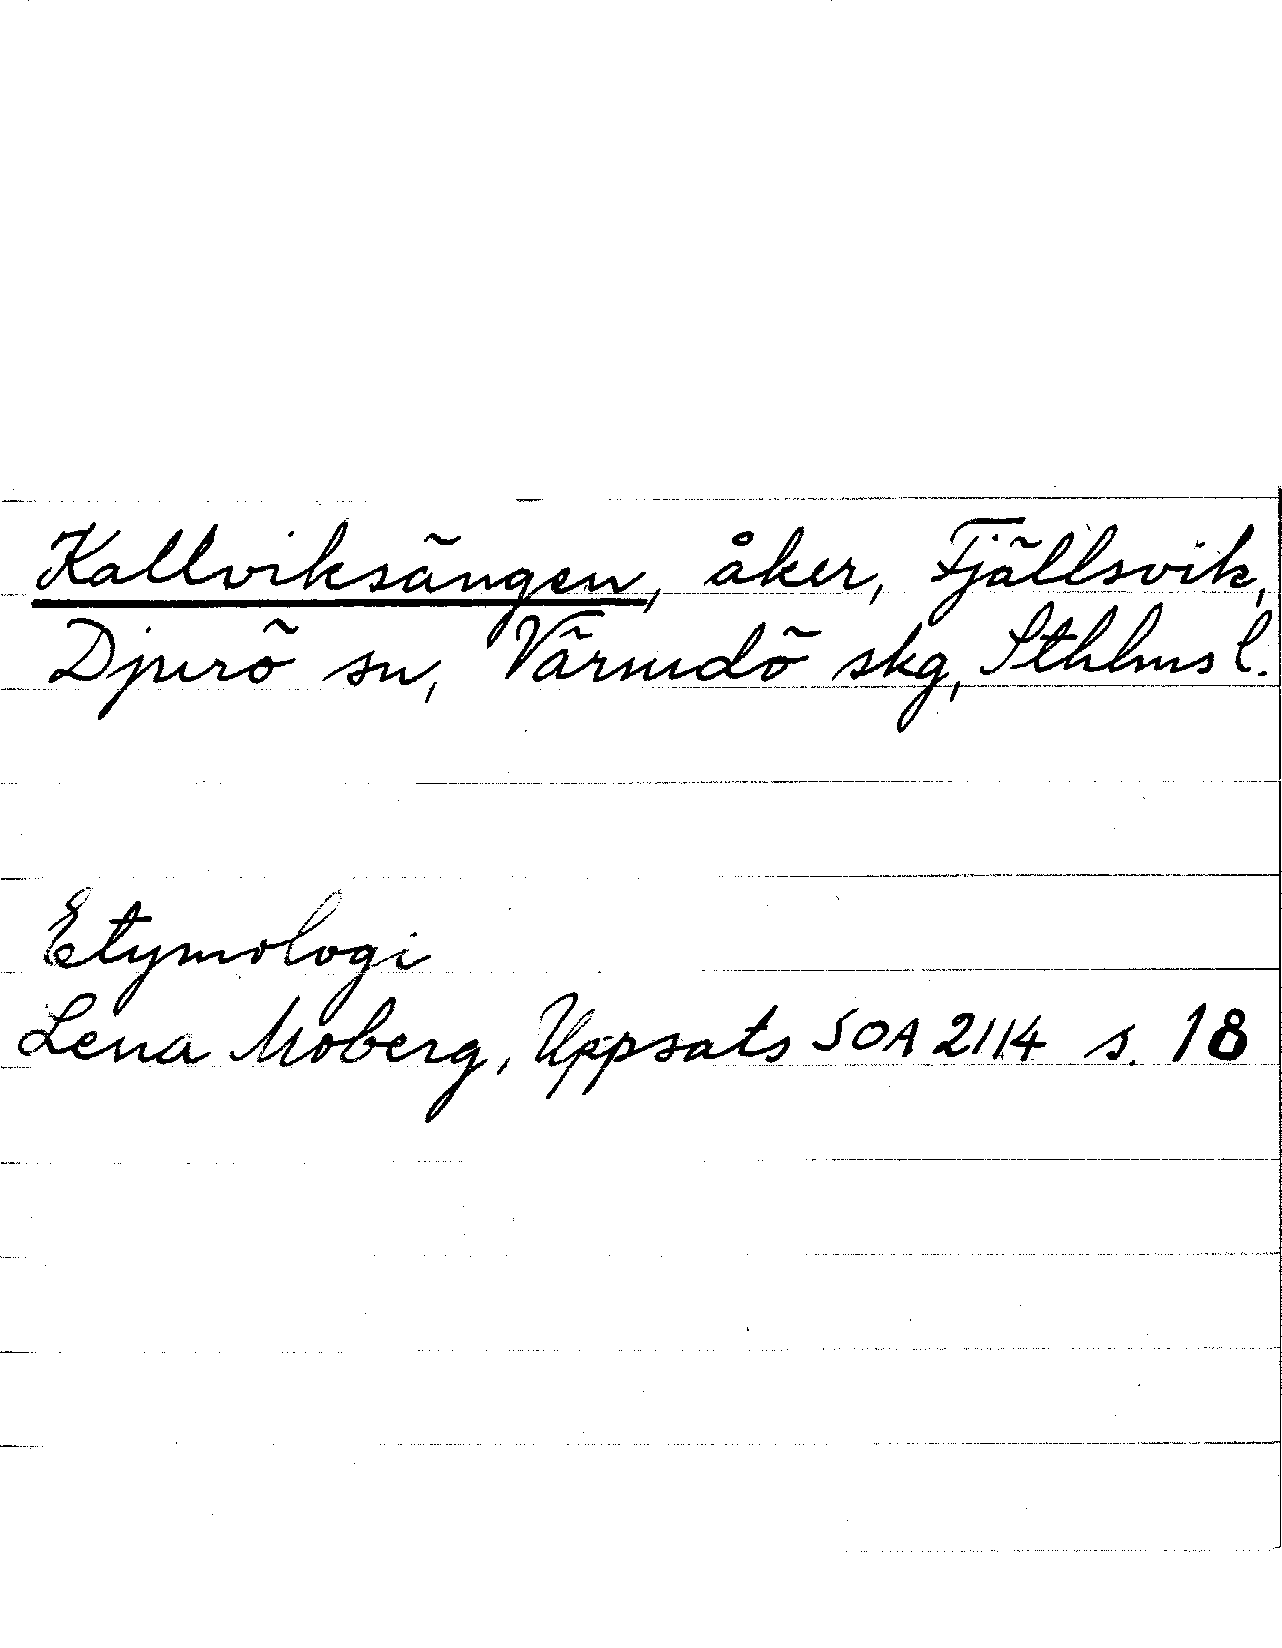 Kallviksängen, åker, Fjällsvik,
Djurö sn, Värmdö skg, Sthlms l.
Etymologi
Lena Moberg, Uppsats SOA 2114 s. 18